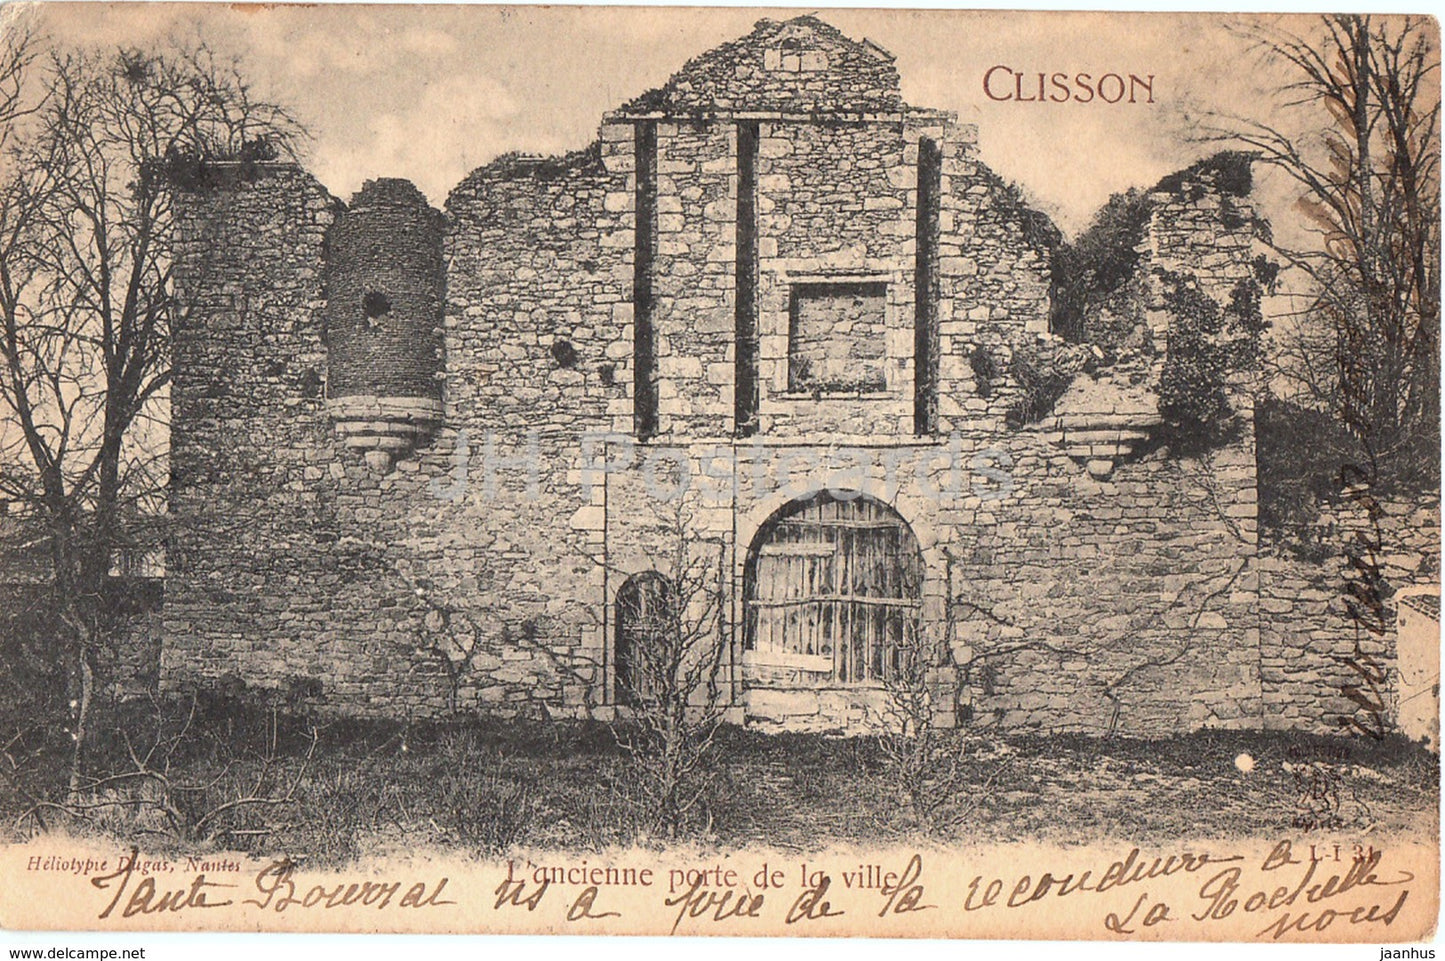 CLISSON
JH Postcards
Héliotypie Dugas, Nantes
L'ancienne porte de la ville
L-I 31
Tante Bourral ns a prié de la reconduire a
La Rochelle
nous
jaanhus
www.delcampe.net